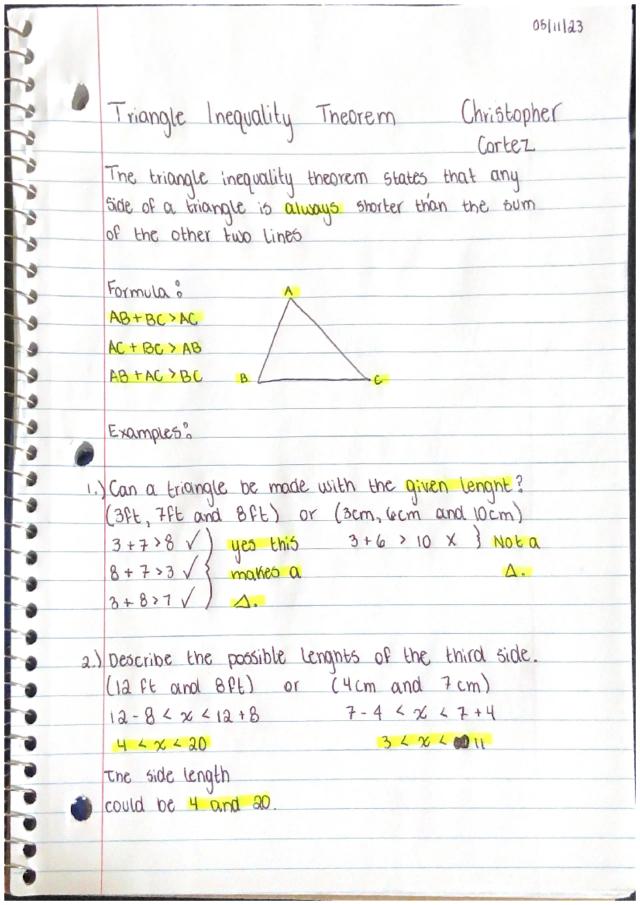 05/11/23
Triangle Inequality Theorem Christopher
Cortez
The triangle inequality theorem states that any
side of a triangle is always shorter than the sum
of the other two lines
Formula:
A
AB + BC > AC
AC + BC > AB
AB + AC > BC B C
Examples:
1.) Can a triangle be made with the given lenght?
(3ft, 7ft and 8ft) or (3cm, 6cm and 10cm)
3 + 7 > 8 ✓ yes this 3 + 6 > 10 x } Not a
8 + 7 > 3 ✓ makes a Δ.
3 + 8 > 7 ✓ Δ.
2.) Describe the possible lenghts of the third side.
(12 ft and 8ft) or (4cm and 7cm)
12 - 8 < x < 12 + 8 7 - 4 < x < 7 + 4
4 < x < 20 3 < x < 11
The side length
could be 4 and 20.